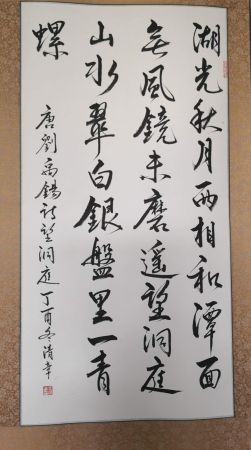 湖光秋月两相和潭面
無風鏡未磨遥望洞庭
山水翠白銀盤里一青
螺
唐劉禹錫詩望洞庭丁酉冬清幸